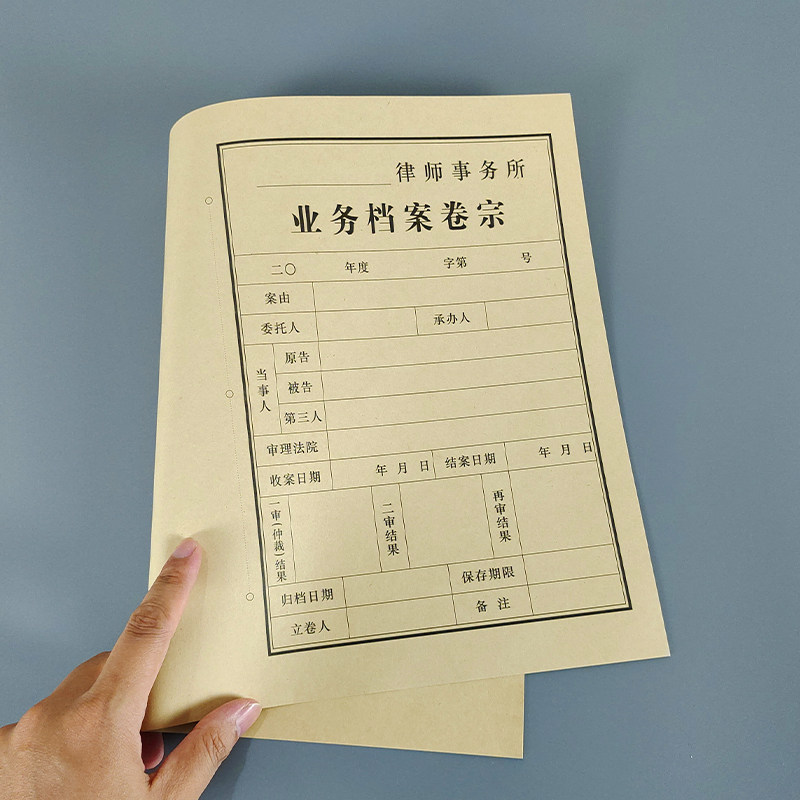 律师事务所
业务档案卷宗
二〇 年度 字第 号
案由
委托人 承办人
当事人
原告
被告
第三人
审理法院
收案日期 年 月 日 结案日期 年 月 日
一审(仲裁)结果 二审结果 再审结果
归档日期 保存期限
立卷人 备注